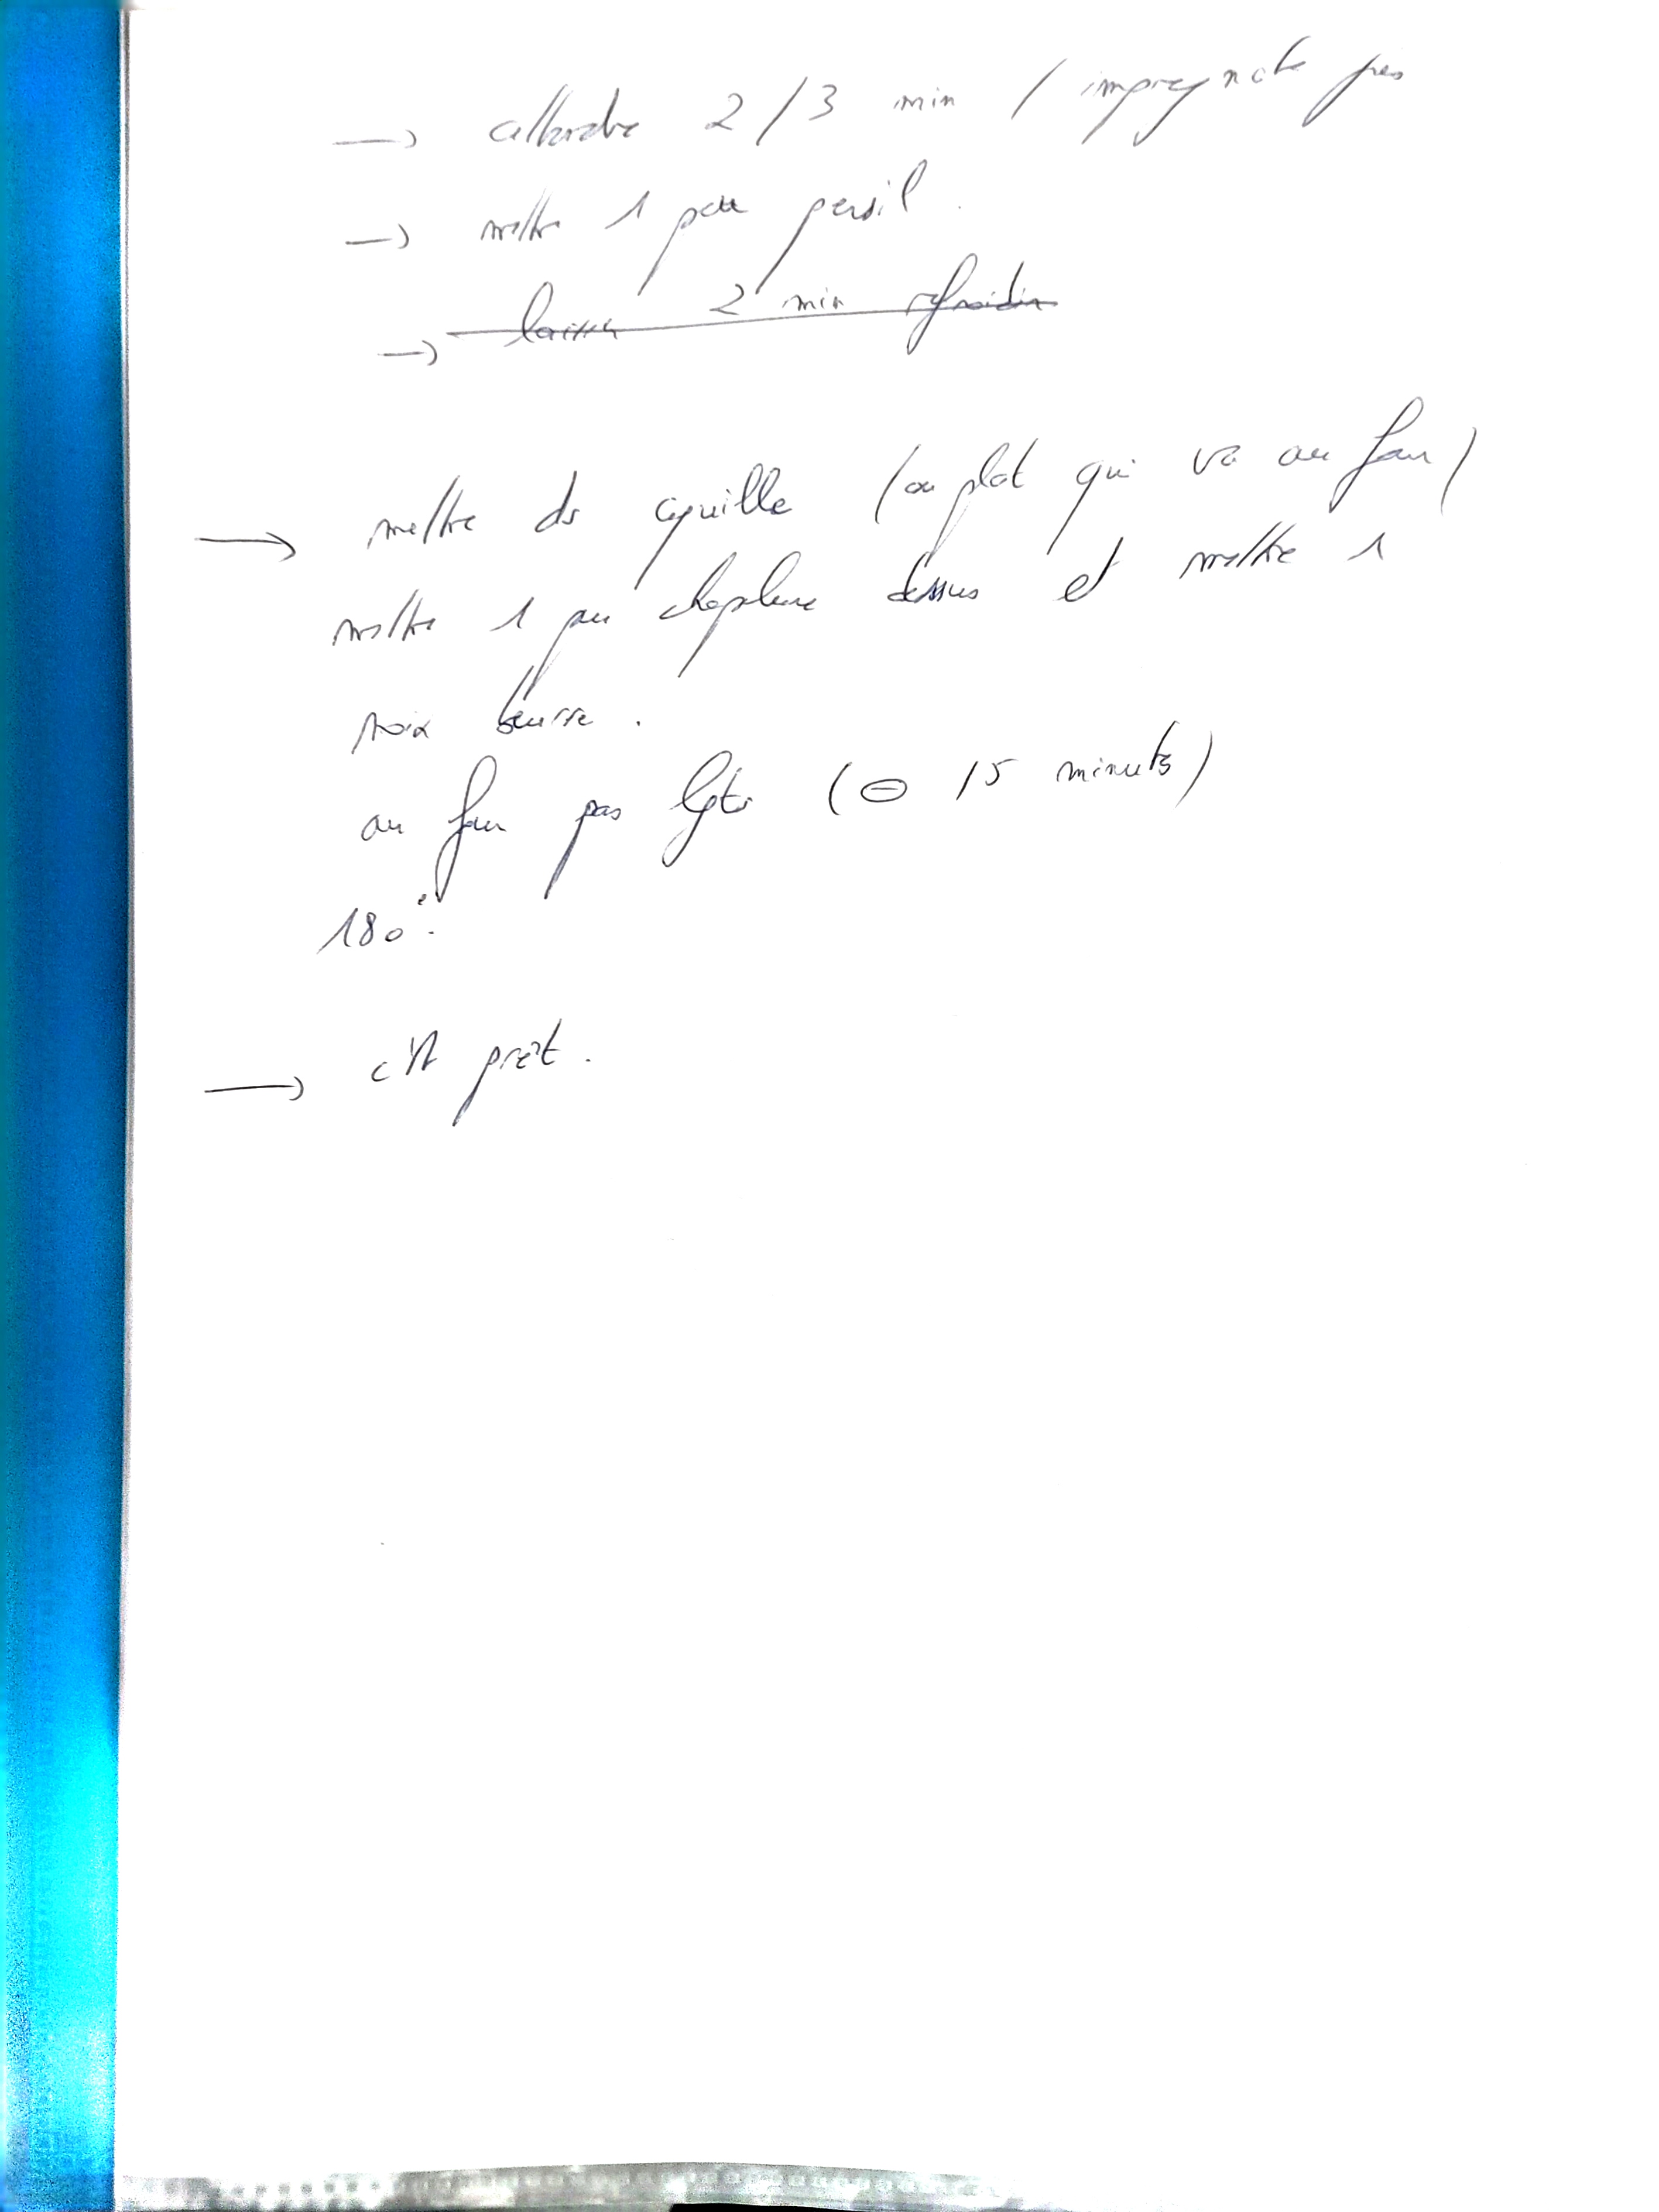 → attendre 2/3 min / impregnate
→ mettre 1 peu persil.
→ laisser 2 min refroidir
→ mettre ds cquille (ou plat qui va au four)
mettre 1 peu chapelure dessus et mettre 1
noix beurre.
au four pas lgtps (⊖ 15 minutes)
180°.
→ c'est prêt.